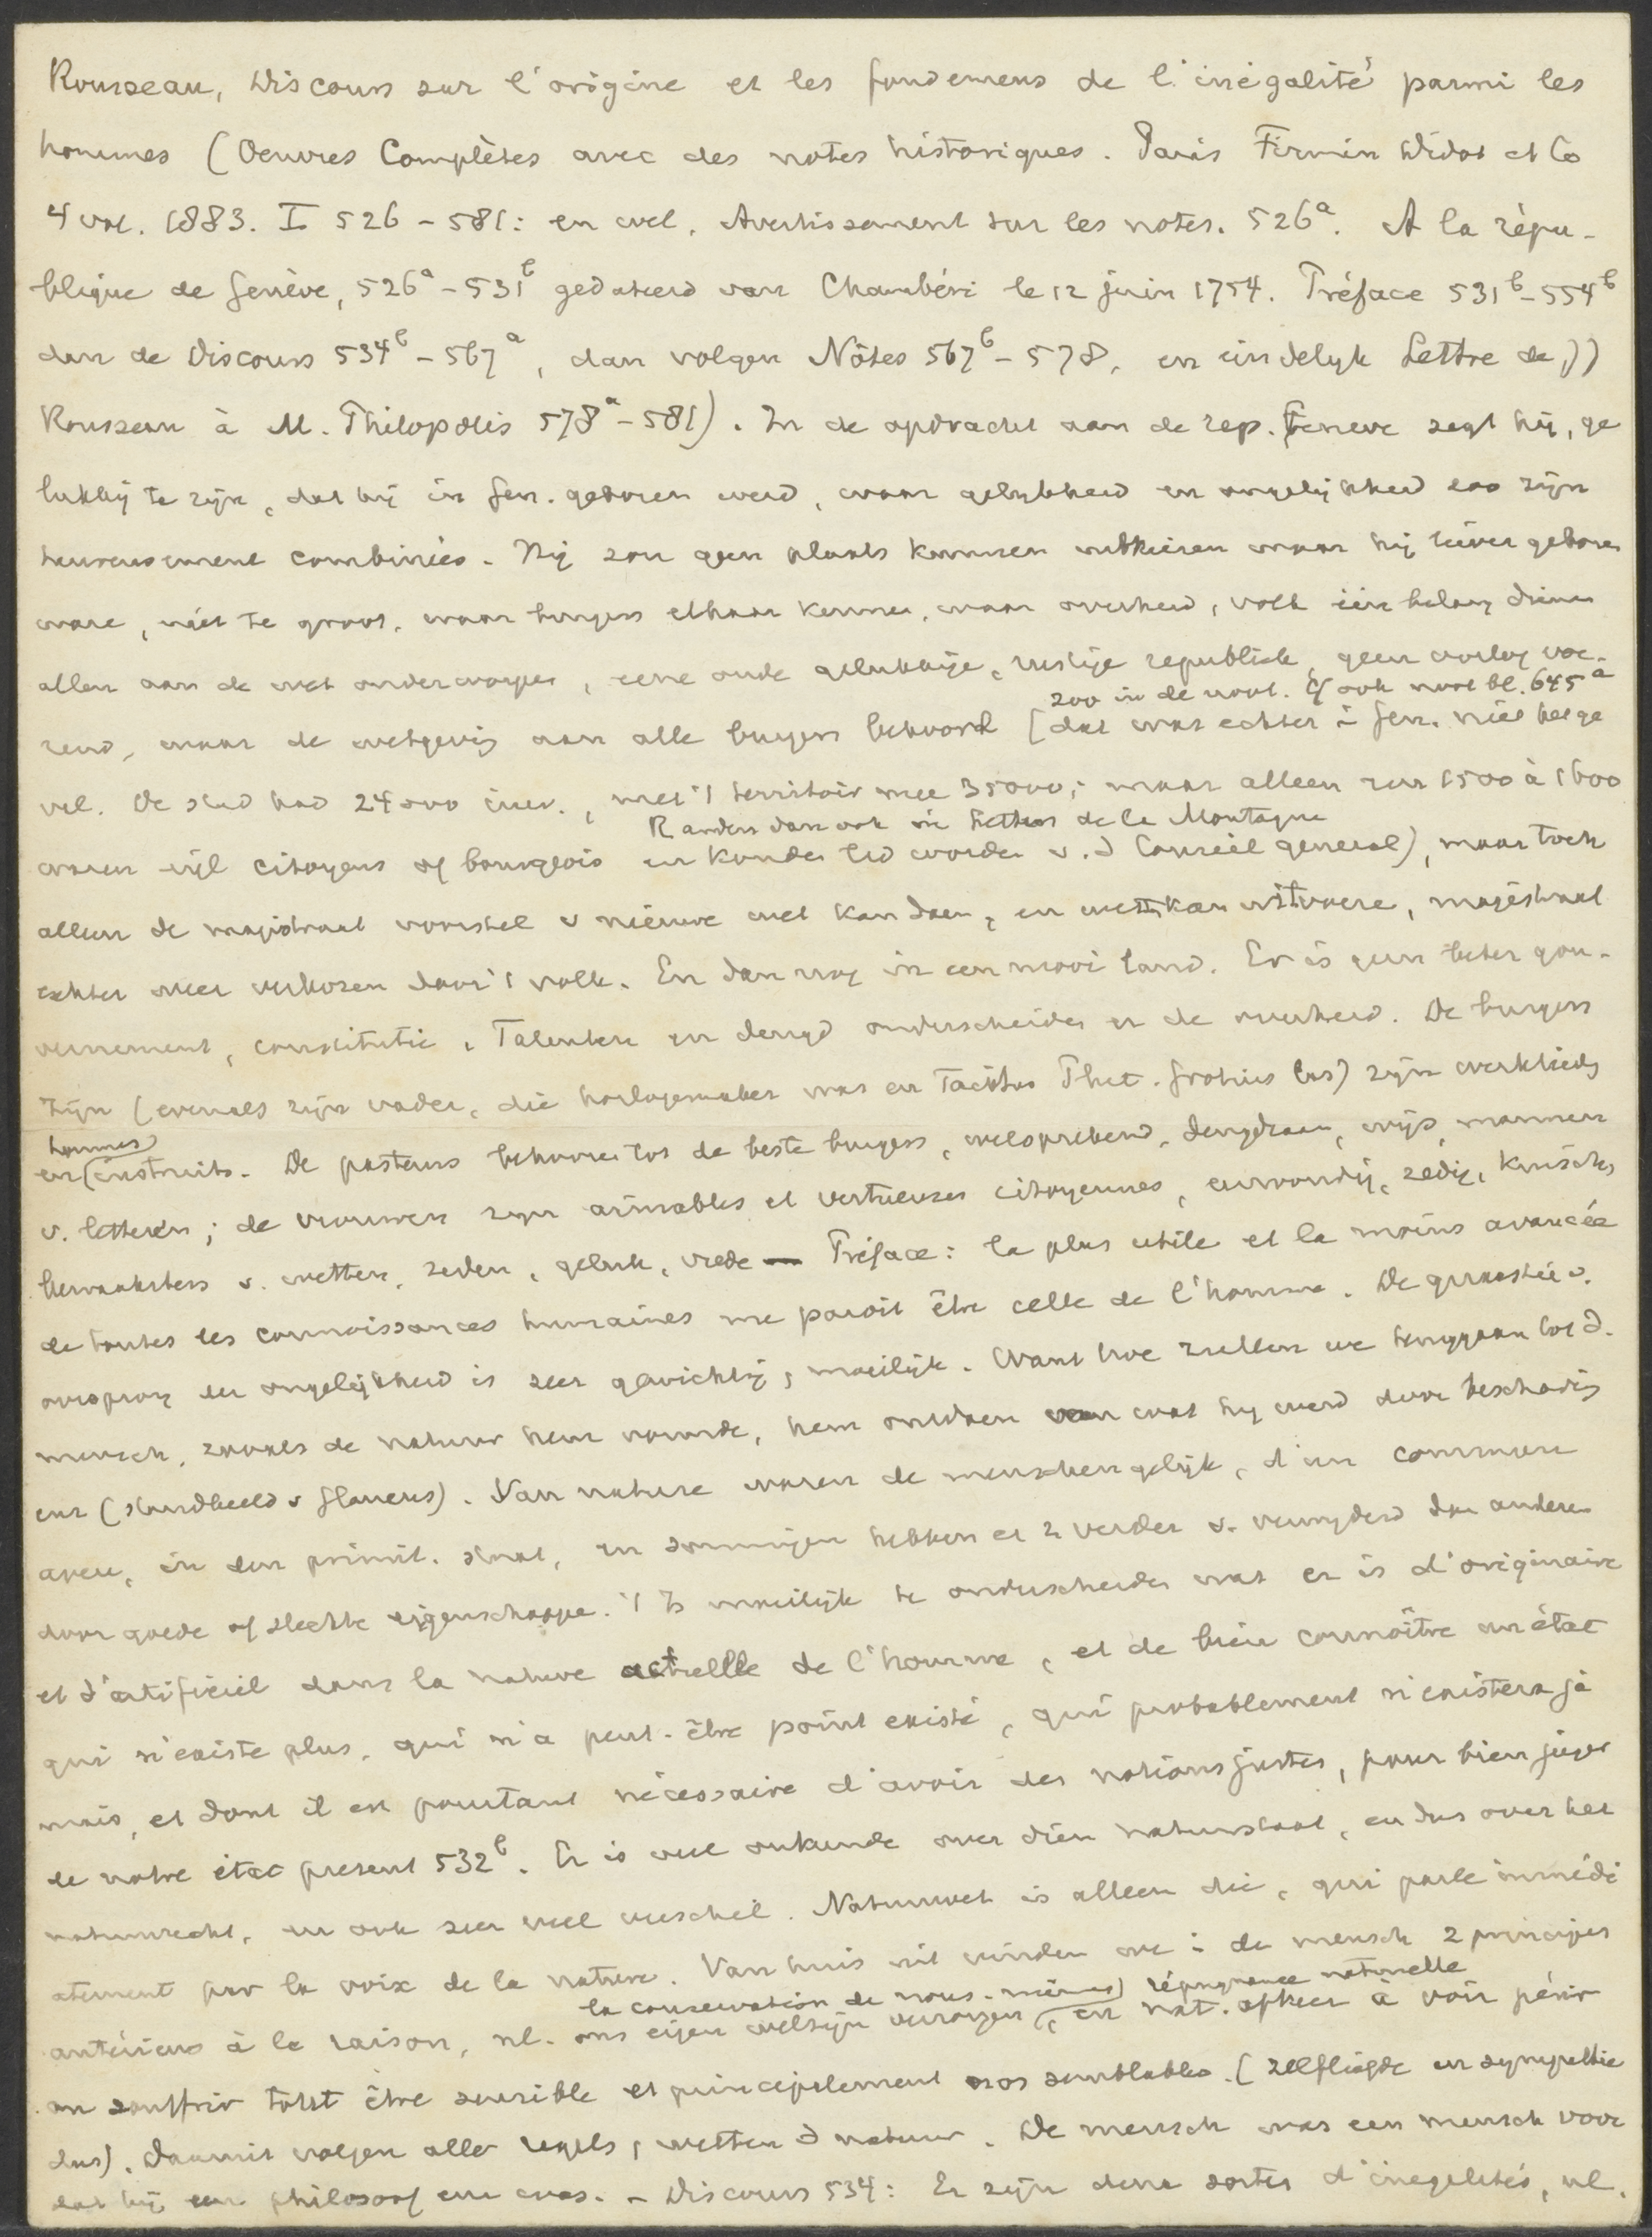 Rousseau, Discours sur l'origine et les fondemens de l'inégalité parmi les
hommes (Oeuvres Complètes avec des notes historiques. Paris Firmin Didot et Co
4 vol. 1883. I 526 - 581: en wel, Avertissement sur les notes. 526a. A la répu-
blique de Genève, 526a - 531b gedateerd van Chambéri le 12 juin 1754. Préface 531b - 554b
dan de Discours 534b - 567a, dan volgen Nôtes 567b - 578, en eindelyk Lettre de JJ
Rousseau à M. Philopolis 578a - 581). In de opdracht aan de rep. Geneve zegt hij, ge
lukkig te zijn, dat hij in Gen. geboren werd, waar gelijkheid en ongelijkheid zoo zijn
heureusement combinées. Hij zou geen plaats kunnen uitkiezen waar hij liever geboren
ware, niet te groot, waar burgers elkaar kennen, waar overheid, volk één belang dienen
allen aan de wet onderworpen, eene oude gelukkige, rustige republiek, geen oorlog voe-
zoo in de noot. Cf ook noot bl. 645a
rend, waar de wetgeving aan alle burgers behoord [dat was echter i Gen. niet het ge
val. De stad had 24000 inw., met 't territoir mee 35000; maar alleen zun 1500 à 1600
R anders dan ook in Lettres de la Montagne
waren vijf citoyens of bourgeois en konden lid worden v. d Conseil general), maar toch
alleen de magistraat voorstel v nieuwe wet kan doen, en wetten kan uitvoere, magistraat
echter weer verkozen door 't volk. En dan nog in een mooi land. Er is geen beter gou-
vernement, constitutie. Talenten en deugd onderscheiden er de overheid. De burgers
zijn (evenals zijn vader, die horlogemaker was en Tacitus Plut. Grotius las) zijn werklieden
hommes)
en (instruits. De pasteurs behooren tot de beste burgers, welsprekend, deugdzaam, wijs, mannen
v. letteren; de vrouwen zijn aimables et vertueuses citoyennes, eenvoudig, zedig, kuische,
bewaaksters v. wetten, zeden, geluk, vrede — Préface: la plus utile et la moins avancée
de toutes les connoissances humaines me paroit être celle de l'homme. De quaestie v.
oorsprong der ongelijkheid is zeer gewichtig, moeilijk. Want hoe zullen we teruggaan tot d.
mensch, zooals de natuur hem vormde, hem ontdoen van wat hij werd door beschaving
enz (standbeeld v Glaucus). Van nature waren de menschen gelijk, d'un commun
aveu, in den primit. staat, en sommigen hebben er z verder v. verwyderd dan anderen
door goede of slechte eigenschappe. 't Is moeilijk te onderscheiden wat er is d'originaire
et d'artificiel dans la nature actuelle de l'homme, et de bien connoître un état
qui n'existe plus, qui n'a peut-être point existé, qui probablement n'existera ja
mais, et dont il est pourtant nécessaire d'avoir des notions justes, pour bien juger
de notre état present 532b. Er is veel onkunde over dien natuurstaat, en dus over het
natuurrecht, en ook zeer veel verschil. Natuurwet is alleen die, qui parle immédi
atement par la voix de la nature. Van huis uit vinden we i de mensch 2 principes
la conservation de nous-mêmes) répugnance naturelle
antérieurs à la raison, nl. ons eigen welzijn verzorgen (, en nat. afkeer à voir périr
ou souffrir tout être sensible et principalement nos semblables. (Zelfliefde en sympathie
dus). Daaruit volgen alle regels, wetten d natuur. De mensch was een mensch voor
dat hij een philosoof enz was. - Discours 534: Er zijn deux sortes d'inegalités, nl.